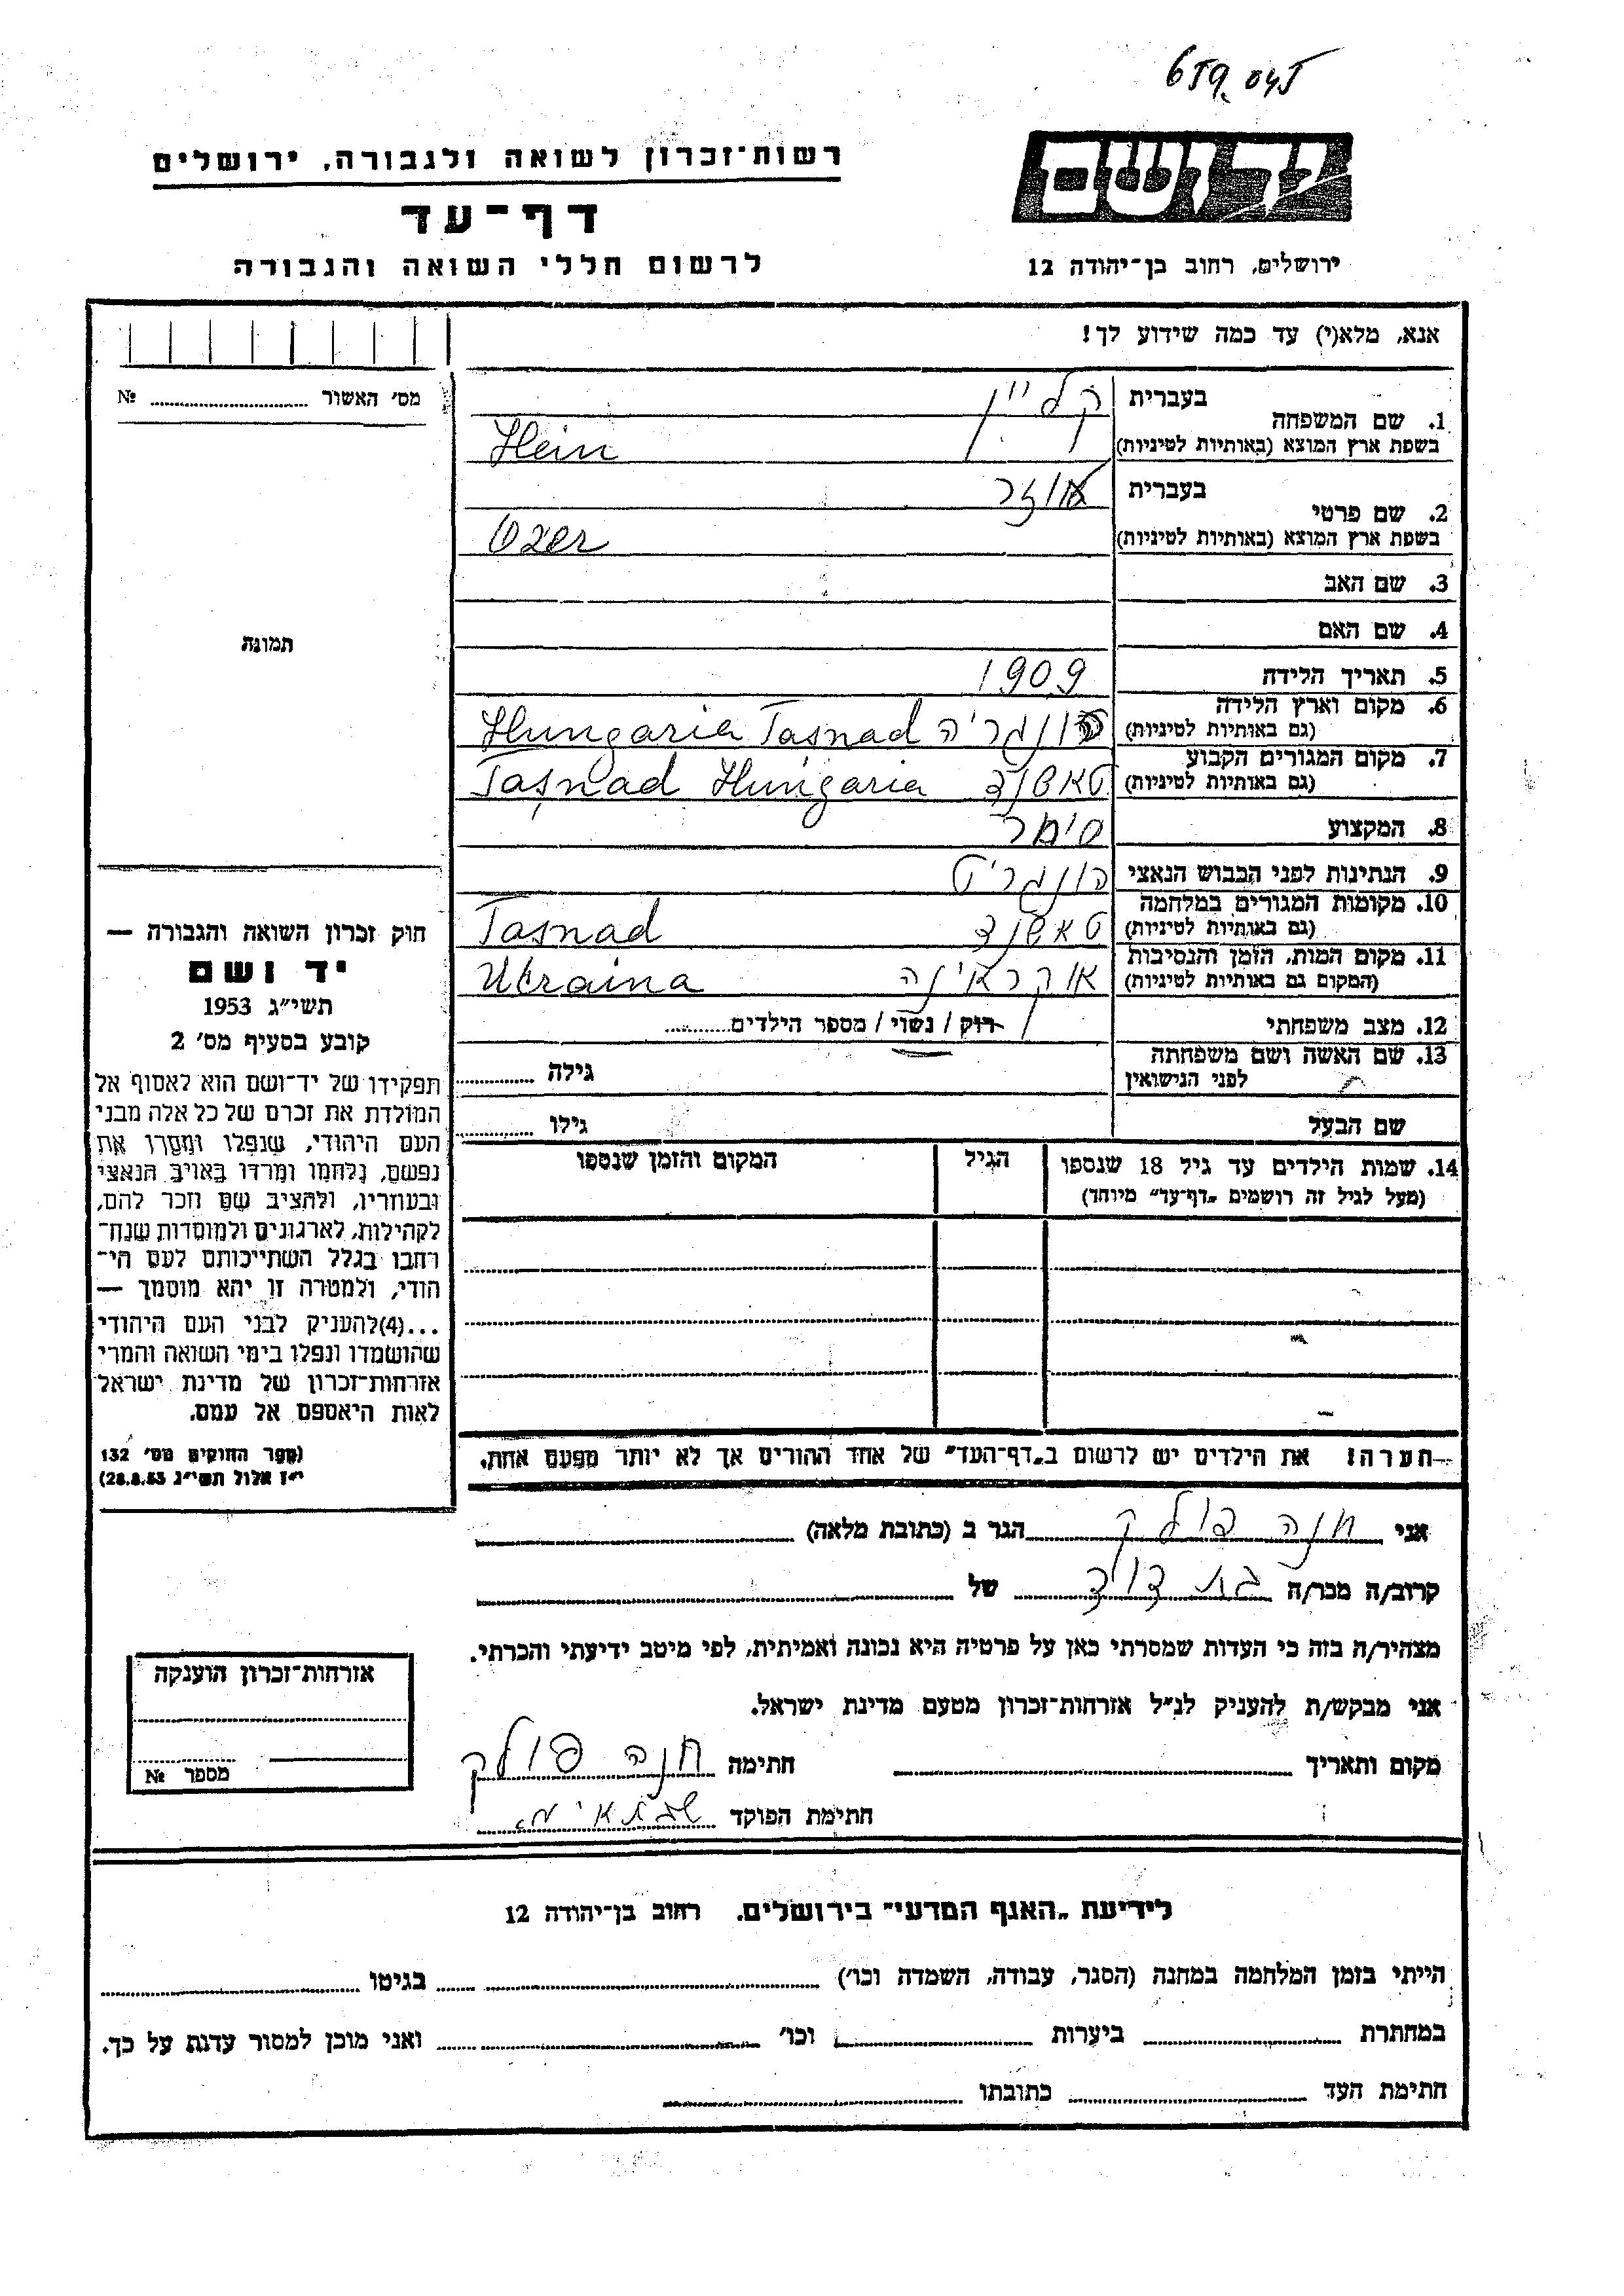 659.045
רשות־זכרון לשואה ולגבורה, ירושלים
דף־עד
לרשום חללי השואה והגבורה
יד ושם
ירושלים, רחוב בן־יהודה 12
אנא, מלא(י) עד כמה שידוע לך!
מס׳ האשור № 
תמונה
1. שם המשפחה
בעברית קליין
בשפת ארץ המוצא (באותיות לטיניות) Klein
2. שם פרטי
בעברית אוזר
בשפת ארץ המוצא (באותיות לטיניות) Ozer
3. שם האב
4. שם האם
5. תאריך הלידה 1909
6. מקום וארץ הלידה (גם באותיות לטיניות) הונגריה Hungaria Tasnad
7. מקום המגורים הקבוע (גם באותיות לטיניות) טאשנד Tasnad Hungaria
8. המקצוע
9. הנתינות לפני הכבוש הנאצי
10. מקומות המגורים במלחמה (גם באותיות לטיניות) טאשנד Tasnad
11. מקום המות, הזמן והנסיבות (המקום גם באותיות לטיניות) אוקראינה Ukraina
12. מצב משפחתי רוק / נשוי / מספר הילדים
13. שם האשה ושם משפחתה לפני הנישואין גילה
שם הבעל גילו
14. שמות הילדים עד גיל 18 שנספו הגיל המקום והזמן שנספו
(מעל לגיל זה רושמים „דף־עד״ מיוחד)
הערה! את הילדים יש לרשום ב„דף־העד״ של אחד ההורים אך לא יותר מפעם אחת.
חוק זכרון השואה והגבורה —
יד ושם
תשי״ג 1953
קובע בסעיף מס׳ 2
תפקידו של יד־ושם הוא לאסוף אל
המולדת את זכרם של כל אלה מבני
העם היהודי, שנפלו ומסרו את
נפשם, נלחמו ומרדו באויב הנאצי
ובעוזריו, ולהציב שם וזכר להם,
לקהילות, לארגונים ולמוסדות שנח־
רבו בגלל השתייכותם לעם הי־
הודי, ולמטרה זו יהא מוסמך —
...(4)להעניק לבני העם היהודי
שהושמדו ונפלו בימי השואה והמרי
אזרחות־זכרון של מדינת ישראל
לאות היאספם אל עמם.
(ספר החוקים מס׳ 132
י״ז אלול תשי״ג 28.8.53)
אני חנה פולק הגר ב (כתובת מלאה)
קרוב/ה מכר/ה בת דוד של
מצהיר/ה בזה כי העדות שמסרתי כאן על פרטיה היא נכונה ואמיתית, לפי מיטב ידיעתי והכרתי.
אני מבקש/ת להעניק לנ״ל אזרחות־זכרון מטעם מדינת ישראל.
מקום ותאריך חתימה חנה פולק
חתימת הפוקד שבתאי מ.
אזרחות־זכרון הוענקה
מספר №
לידיעת „האגף המדעי״ בירושלים. רחוב בן־יהודה 12
הייתי בזמן המלחמה במחנה (הסגר, עבודה, השמדה וכו׳) בגיטו
במחתרת ביערות וכו׳ ואני מוכן למסור עדות על כך.
חתימת העד כתובתו